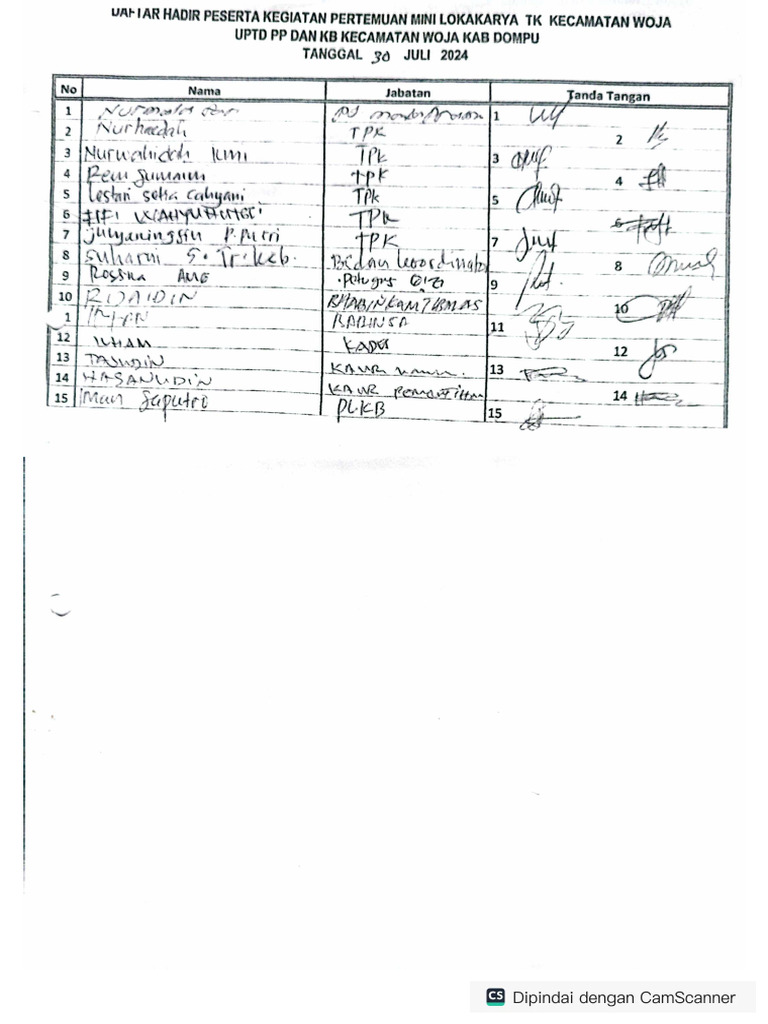 DAFTAR HADIR PESERTA KEGIATAN PERTEMUAN MINI LOKAKARYA TK KECAMATAN WOJA
UPTD PP DAN KB KECAMATAN WOJA KAB DOMPU
TANGGAL 30 JULI 2024
No Nama Jabatan Tanda Tangan
1 1
2 Nurhaedah TPK 2
3 Nurwahidah TPK 3
4 TPK 4
5 Lestari setia cahyani TPK 5
6 FIFI WAHYUNINGSI TPK 6
7 Julyaningsih P. Putri TPK 7
8 Suharni S.Tr.keb. Bidan koordinator 8
9 Rossna AMG Petugas Gizi 9
10 RUAIDIN BHABINKAMTIBMAS 10
1 BABINSA 11
12 ILHAM KADUS 12
13 TAJUDIN KAUR 13
14 HASANUDIN KAUR 14
15 Iman Saputro PLKB 15
CS Dipindai dengan CamScanner